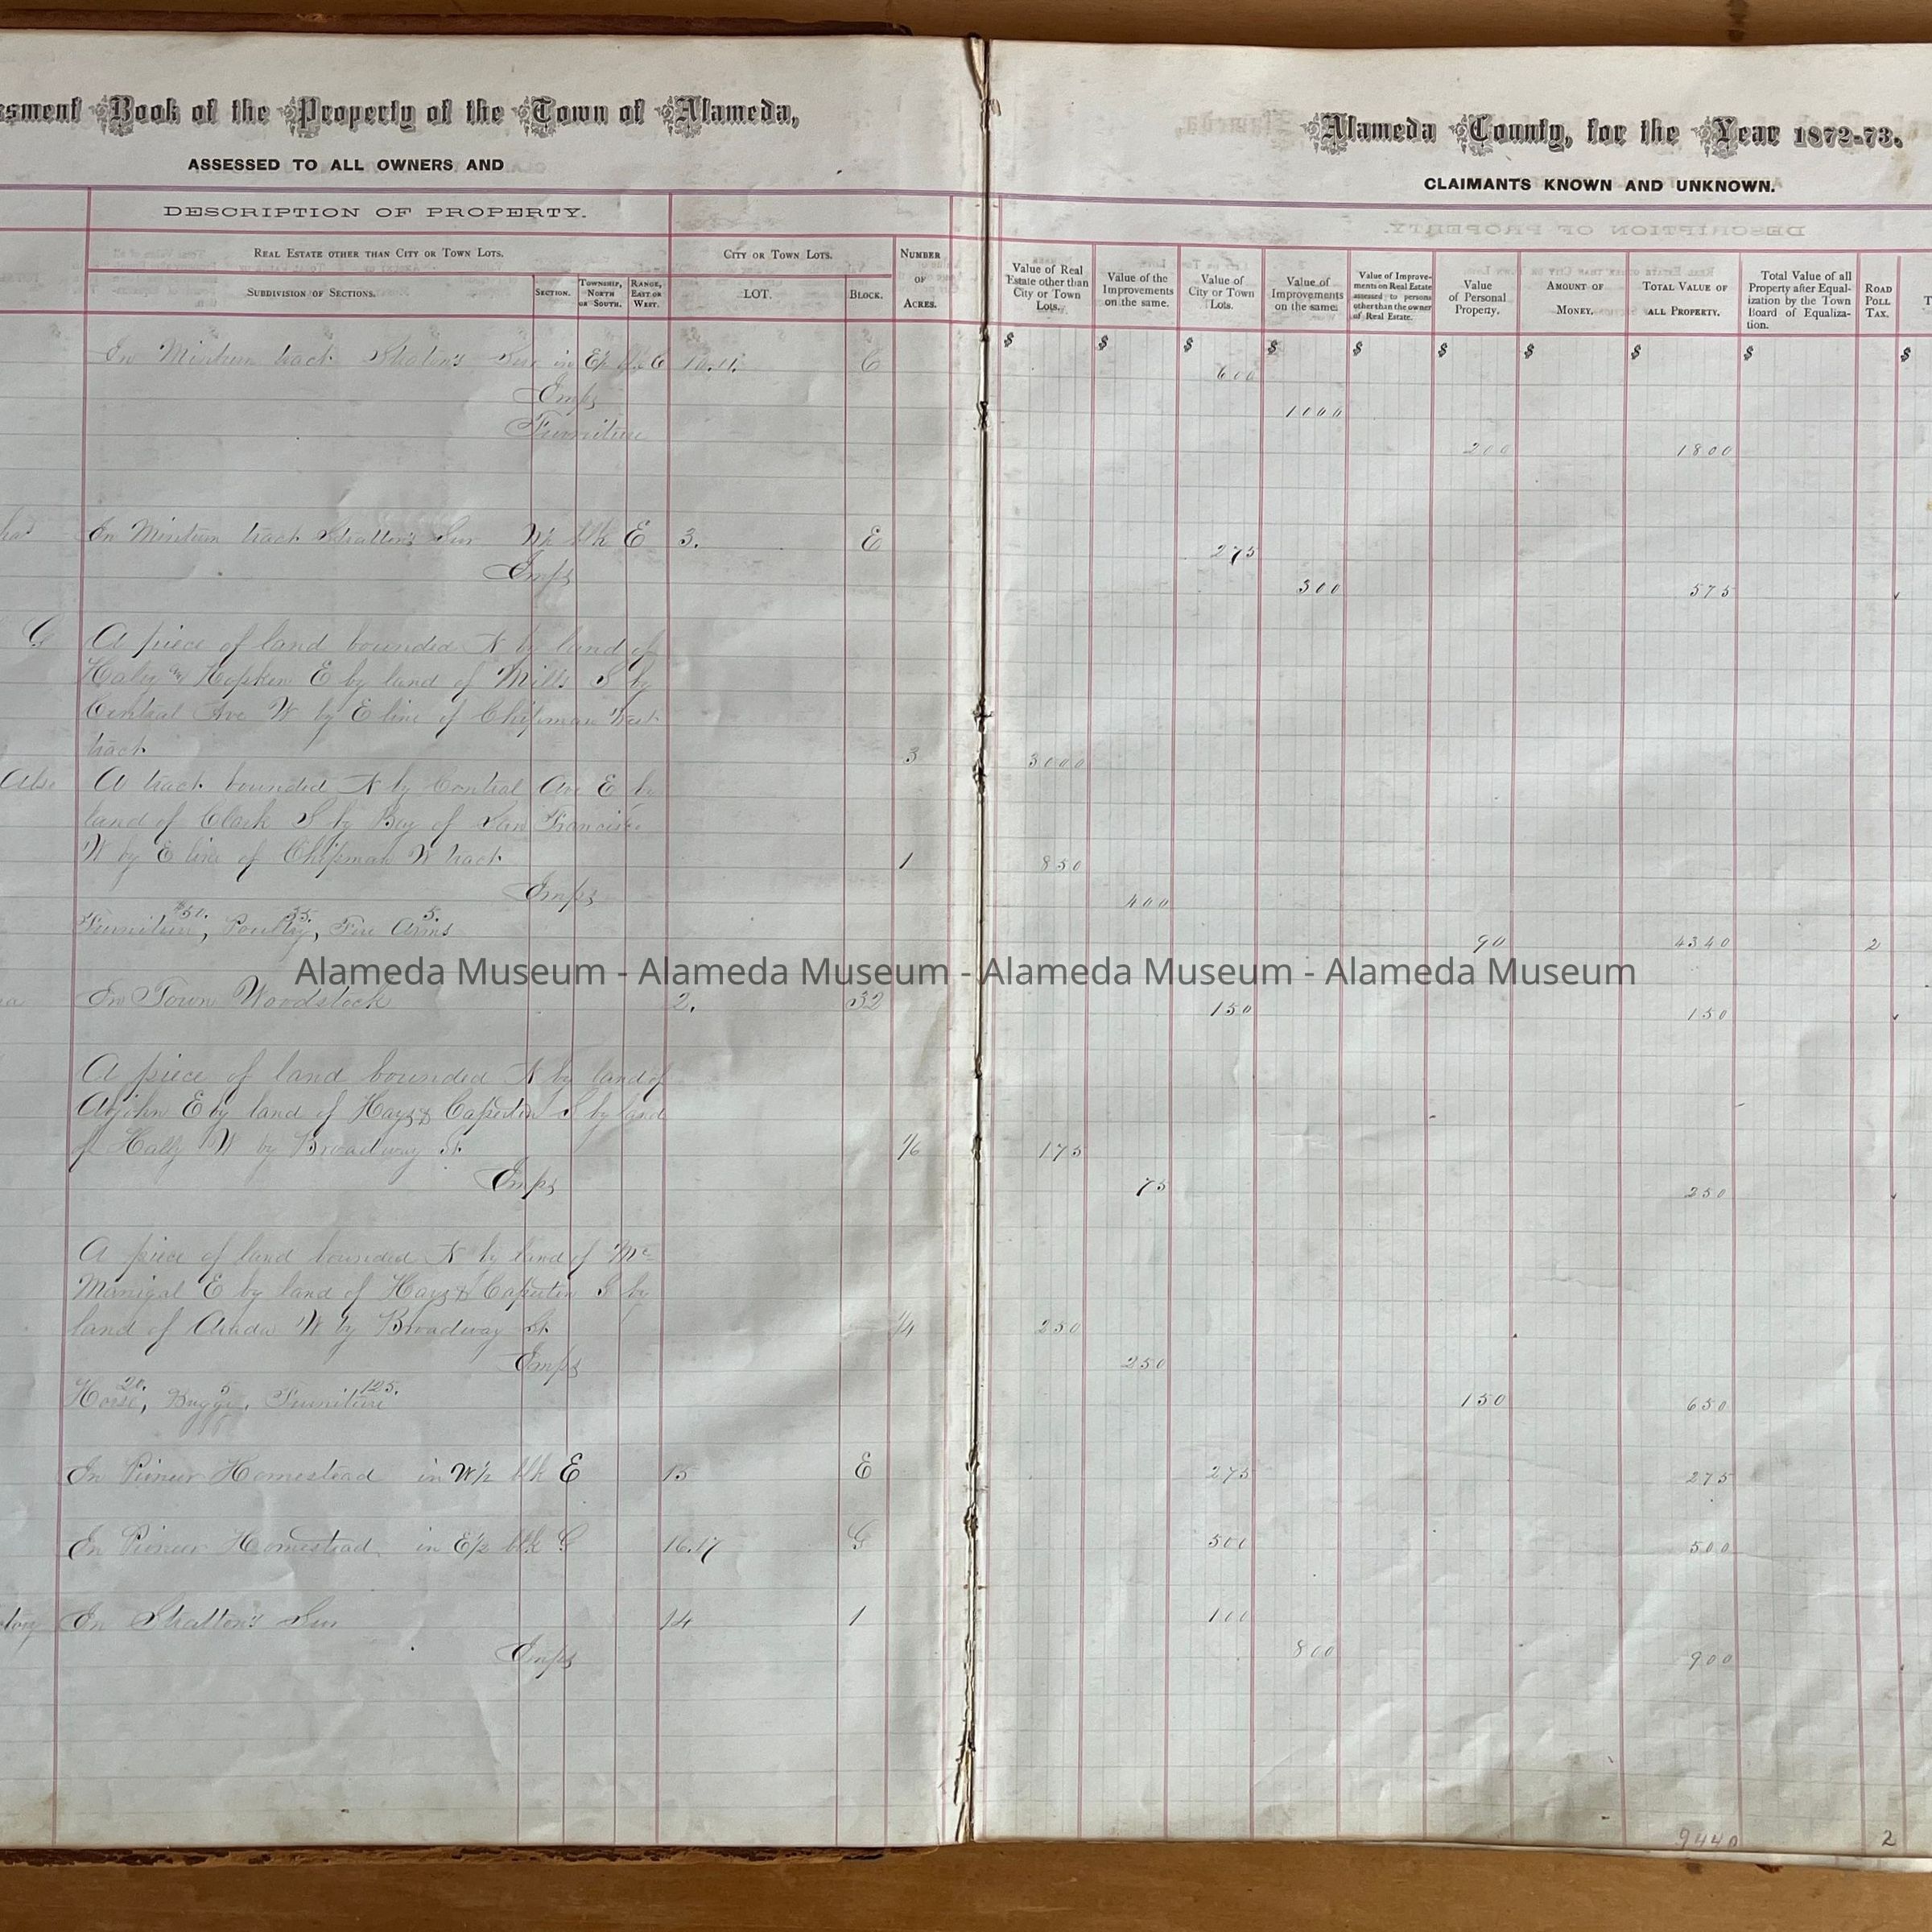 ssment Book of the Property of the Town of Alameda,
ASSESSED TO ALL OWNERS AND
Alameda County, for the Year 1872-73.
CLAIMANTS KNOWN AND UNKNOWN.
DESCRIPTION OF PROPERTY.
REAL ESTATE OTHER THAN CITY OR TOWN LOTS.
CITY OR TOWN LOTS.
NUMBER OF ACRES.
SUBDIVISION OF SECTIONS.
SECTION.
TOWNSHIP, NORTH OR SOUTH.
RANGE, EAST OR WEST.
LOT.
BLOCK.
Value of Real Estate other than City or Town Lots.
Value of the Improvements on the same.
Value of City or Town Lots.
Value of Improvements on the same.
Value of Improve-ments on Real Estate assessed to persons other than the owner of Real Estate.
Value of Personal Property.
AMOUNT OF MONEY.
TOTAL VALUE OF ALL PROPERTY.
Total Value of all Property after Equal-ization by the Town Board of Equaliza-tion.
ROAD POLL TAX.
$ $ $ $ $ $ $ $ $ $
In Minturn track Stratton's Sur in E½ blk C 10.11. C 600
Imps 1000
Furniture 200 1800
In Minturn track Stratton's Sur W½ blk E 3. E 275
Imps 300 575
G A piece of land bounded N by land of
Haley & Hopkin E by land of Mills S by
Central Ave W by E line of Chipman West
track 3 3000
Also A track bounded N by Central Ave E by
land of Clark S by Bay of San Francisco
W by E line of Chipman W track 1 850
Imps 400
$50. 35. 5.
Furniture, Poultry, Fire Arms 90 4340 2
Alameda Museum - Alameda Museum - Alameda Museum - Alameda Museum
In Town Woodstock 2. 32 150 150
A piece of land bounded N by land of
E by land of Hays & Caperton S by land
of Hally W by Broadway St. 1/6 175
Imps 75 250
A piece of land bounded N by land of Mc
Manigal E by land of Hays & Caperton S by
land of W by Broadway St. 1/4 250
Imps 250
20. 5 125.
Horse, Buggy, Furniture 150 650
In Pioneer Homestead in W½ blk E 15 E 275 275
In Pioneer Homestead in E½ blk G 16.17 G 500 500
In Stratton's Sur 14 1 100
Imps 800 900
9440 2